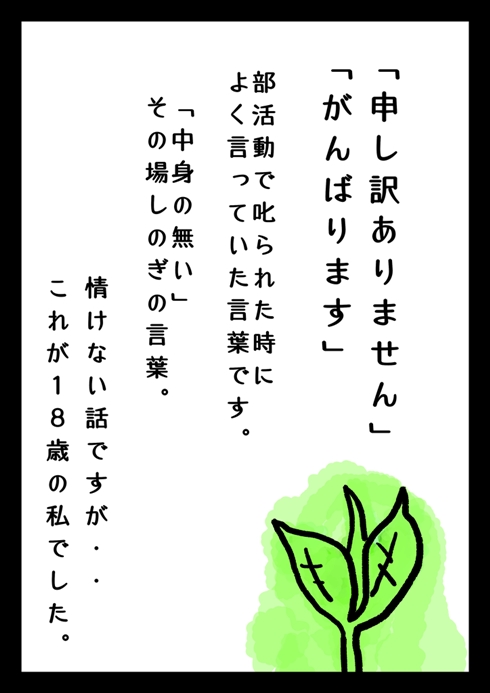 「申し訳ありません」
「がんばります」
部活動で叱られた時に
よく言っていた言葉です。
「中身の無い」
その場しのぎの言葉。
情けない話ですが・・
これが18歳の私でした。